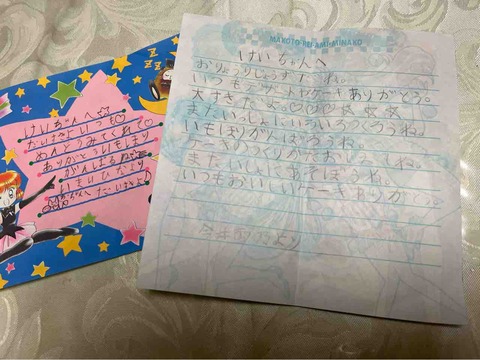 MAKOTO REI AMI MINAKO
けいちゃんへ
おりょうりじょうずだね。
いつも ケーキありがとう。
大すきだよ♡♡♡☆☆☆
またいっしょにいろいろつくろうね
いもほりがんばろうね。
ケーキのつくりかたおしえてね。
またいっしょにあそぼうね。
いつもおいしいケーキありがとう。
より
けいちゃんへ
だいすきいつも♡
めんどうみてくれて
ありがとういもほり
がんばるね
だいすき